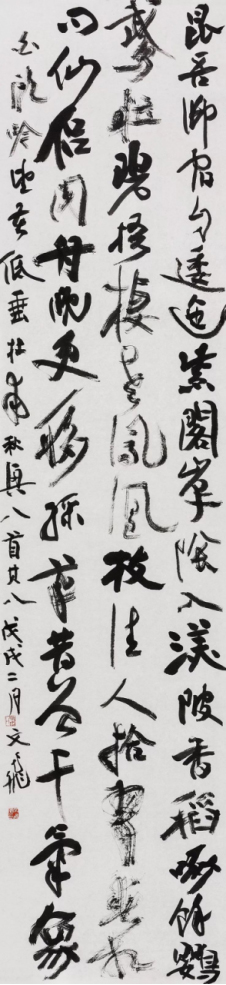 昆吾御宿自逶迤紫閣峯陰入渼陂香稻啄餘鸚
鵡粒碧梧棲老鳳凰枝佳人拾翠春相
問仙侶同舟晚更移綵筆昔曾干氣象
白頭吟望苦低垂杜甫秋興八首其八戊戌二月文飛